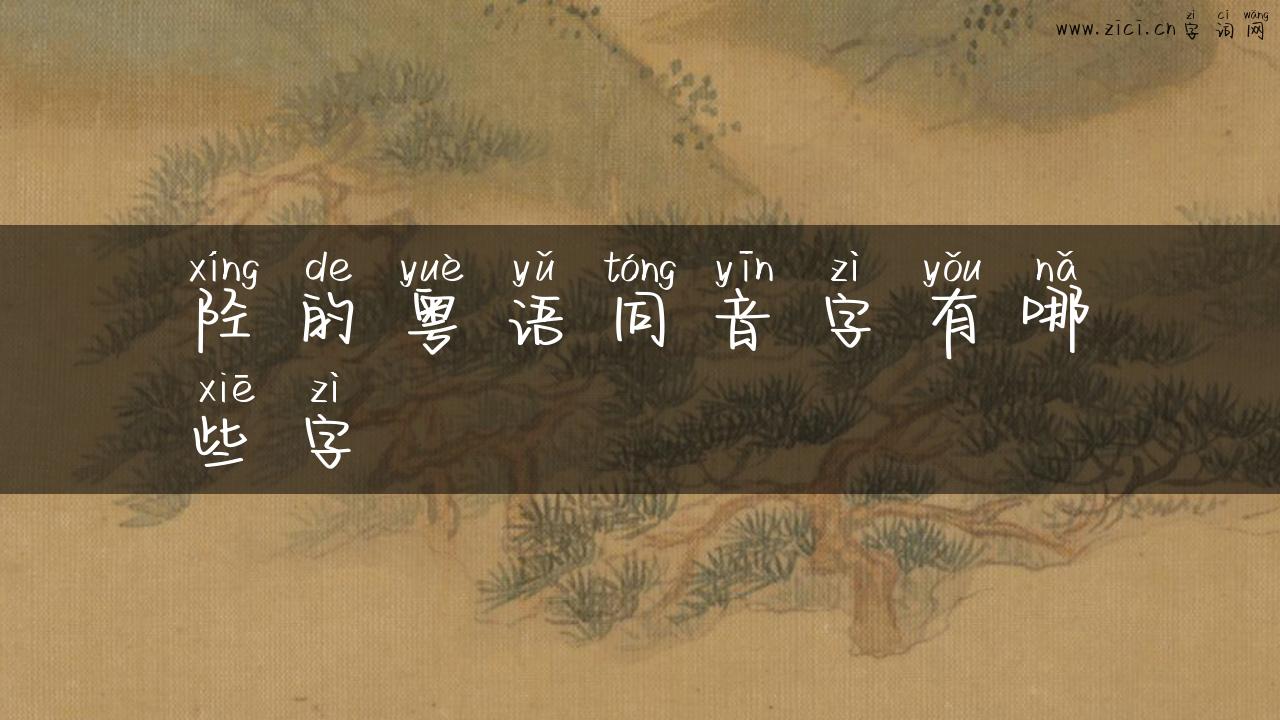 zì cí wǎng
www.zici.cn 字词网
xíng de yuè yǔ tóng yīn zì yǒu nǎ
陉的粤语同音字有哪
xiē zì
些字